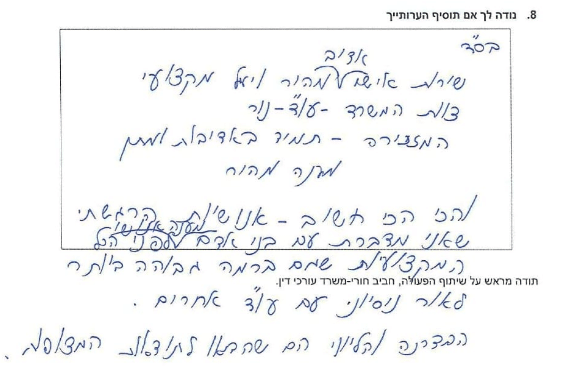 8. נודה לך אם תוסיף הערותייך
בס"ד
אדיב
שירות אישי ומהיר ויעיל מקצועי
צוות המשרד - עו"ד - נור
המזכירה - תמיד באדיבות ומתן
מענה מהיר
והכי הכי חשוב - אנושיות הרגשתי
מענה אנושי
שאני מדברת עם בני אדם לפני הכל
המקצועיות שמם ברמה גבוהה ביותר
תודה מראש על שיתוף הפעולה, חביב חורי-משרד עורכי דין.
לאור ניסיוני עם עו"ד אחרים.
הכדרנה והליווי הם שהבאו לתוצאות המצופות.